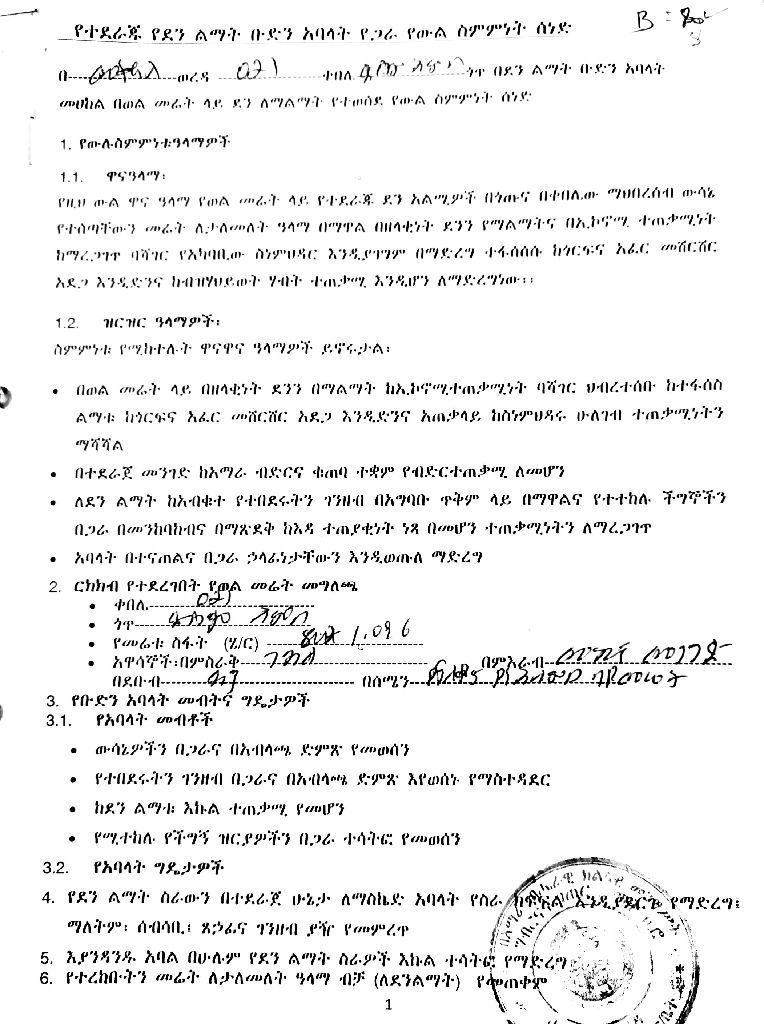 የተደራጁ የደን ልማት ቡድን አባላት የጋራ የውል ስምምነት ሰነድ
በ ወረዳ ቀበሌ ጎጥ በደን ልማት ቡድን አባላት
መሀከል በወል መሬት ላይ ደን ለማልማት የተወሰደ የውል ስምምነት ሰነድ
1. የውሉስምምነቱዓላማዎች
1.1. ዋናዓላማ፡
የዚህ ውል ዋና ዓላማ የወል መሬት ላይ የተደራጁ ደን አልሚዎች በጎጡና በቀበሌው ማህበረሰብ ውሳኔ
የተሰጣቸውን መሬት ለታለመለት ዓላማ በማዋል በዘላቂነት ደንን የማልማትና በኢኮኖሚ ተጠቃሚነት
ከማረጋገጥ ባሻገር የአካባቢው ስነምህዳር እንዲያገግም በማድረግ ተፋሰሰሱ ከጎርፍና አፈር መሸርሸር
አደጋ እንዲድንና ከብዝሃህይወት ሃብት ተጠቃሚ እንዲሆን ለማድረግነው፡፡
1.2. ዝርዝር ዓላማዎች፡
ስምምነቱ የሚከተሉት ዋናዋና ዓላማዎች ይኖሩታል፡
• በወል መሬት ላይ በዘላቂነት ደንን በማልማት ከኢኮኖሚተጠቃሚነት ባሻገር ህብረተሰቡ ከተፋሰስ
ልማቱ ከጎርፍና አፈር መሸርሸር አደጋ እንዲድንና አጠቃላይ ከስነምህዳሩ ሁለገብ ተጠቃሚነትን
ማሻሻል
• በተደራጀ መንገድ ከአማራ ብድርና ቁጠባ ተቋም የብድርተጠቃሚ ለመሆን
• ለደን ልማት ከአብቁተ የተበደሩትን ገንዘብ በአግባቡ ጥቅም ላይ በማዋልና የተተከሉ ችግኞችን
በጋራ በመንከባከብና በማጽደቅ ከእዳ ተጠያቂነት ነጻ በመሆን ተጠቃሚነትን ለማረጋገጥ
• አባላት በተናጠልና በጋራ ኃላፊነታቸውን እንዲወጡለ ማድረግ
2. ርክክብ የተደረገበት የወል መሬት መግለጫ
• ቀበሌ
• ጎጥ
• የመሬቱ ስፋት (ሄ/ር) 1.096
• አዋሳኞች፡በምስራቅ በምእራብ
በደቡብ በሰሜን
3. የቡድን አባላት መብትና ግዴታዎች
3.1. የአባላት መብቶች
• ውሳኔዎችን በጋራና በአብላጫ ድምጽ የመወሰን
• የተበደሩትን ገንዘብ በጋራና በአብላጫ ድምጽ እየወሰኑ የማስተዳደር
• ከደን ልማቱ እኩል ተጠቃሚ የመሆን
• የሚተከሉ የችግኝ ዝርያዎችን በጋራ ተሳትፎ የመወሰን
3.2. የአባላት ግዴታዎች
4. የደን ልማት ስራውን በተደራጀ ሁኔታ ለማስኬድ አባላት የስራ ክፍፍል እንዲያደርጉ የማድረግ፤
ማለትም፡ ሰብሳቢ፤ ጸኃፊና ገንዘብ ያዥ የመምረጥ
5. እያንዳንዱ አባል በሁሉም የደን ልማት ስራዎች እኩል ተሳትፎ የማድረግ
6. የተረከቡትን መሬት ለታለመለት ዓላማ ብቻ (ለደንልማት) የመጠቀም
1